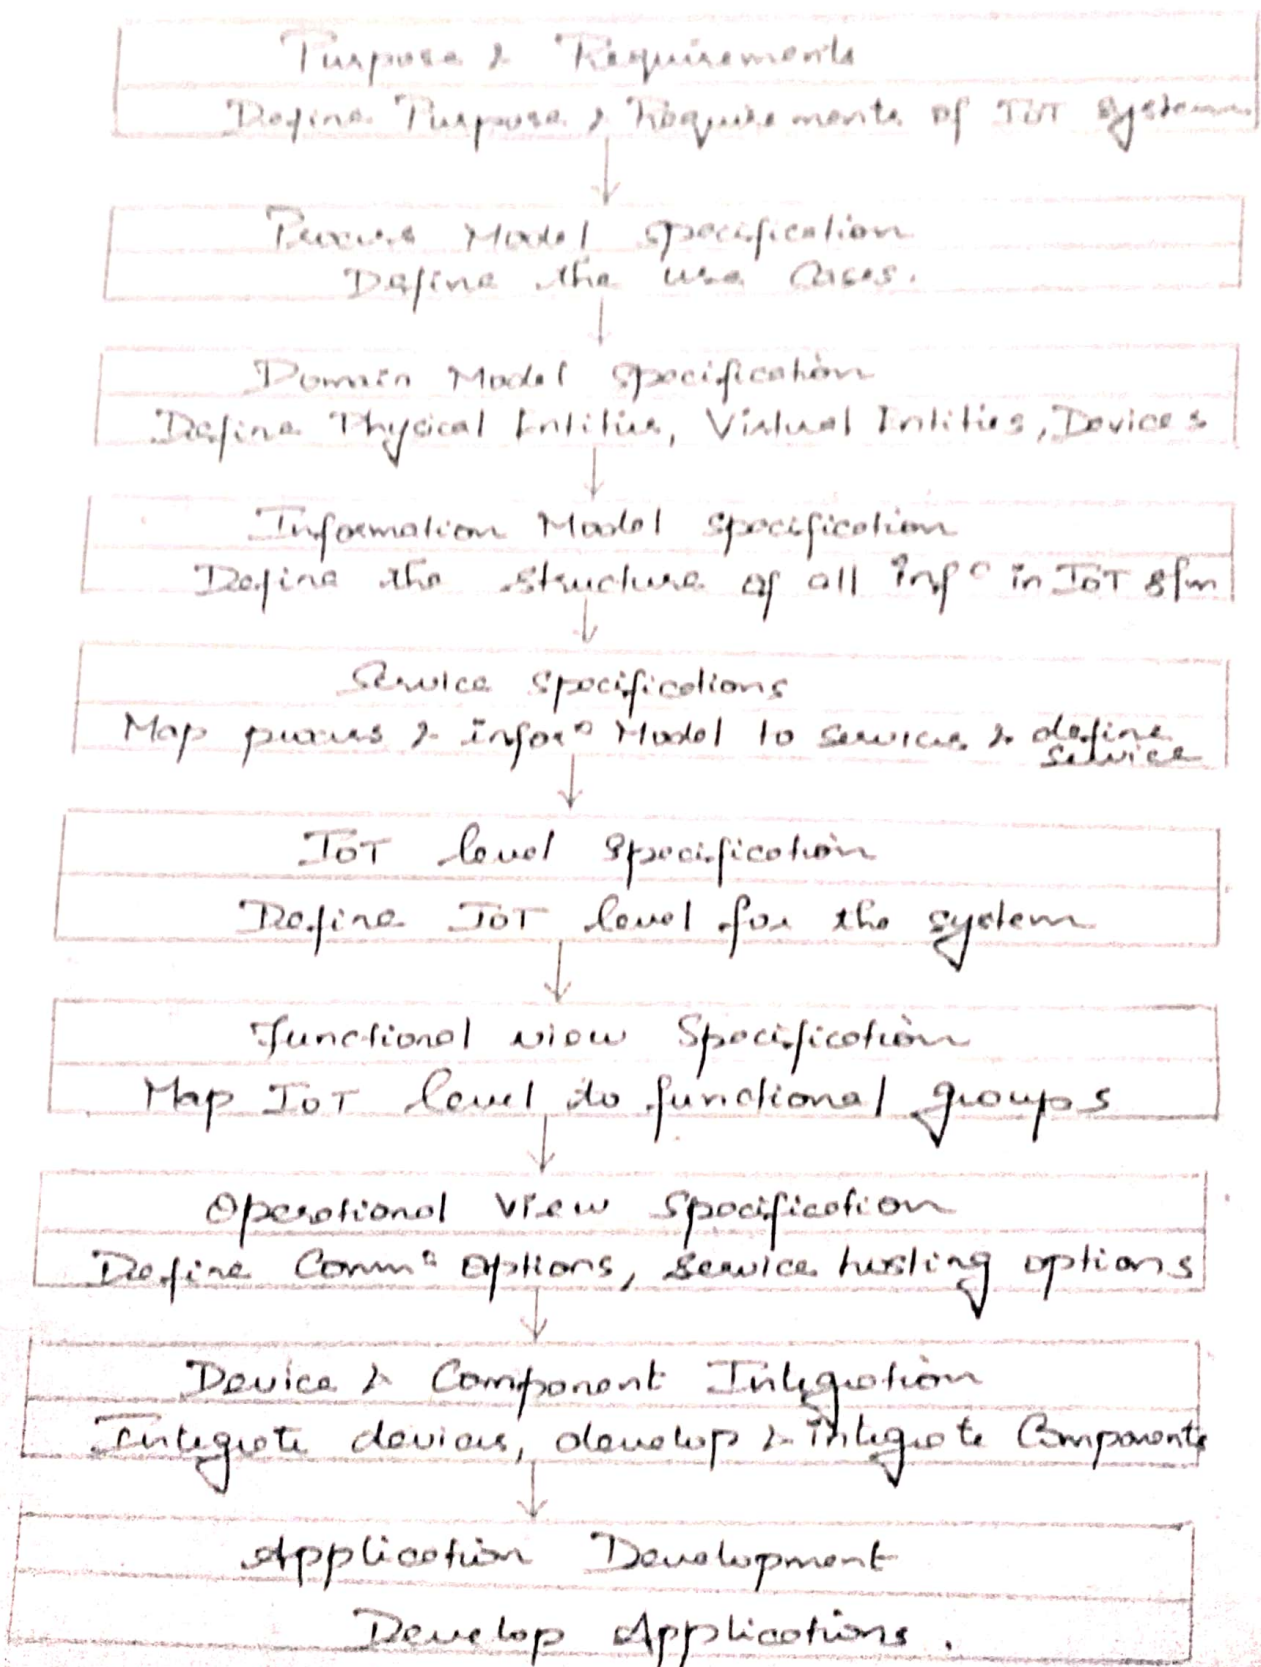 Purpose & Requirements
Define Purpose & Requirements of IoT system
Process Model Specification
Define the use Cases.
Domain Model Specification
Define Physical Entities, Virtual Entities, Devices
Information Model Specification
Define the structure of all infⁿ in IoT s/m
Service Specifications
Map process & inforⁿ Model to services & define
service
IoT level Specification
Define IoT level for the system
Functional view Specification
Map IoT level to functional groups
Operational View Specification
Define Commⁿ Options, service hosting options
Device & Component Integration
Integrate devices, develop & integrate Components
Application Development
Develop Applications.